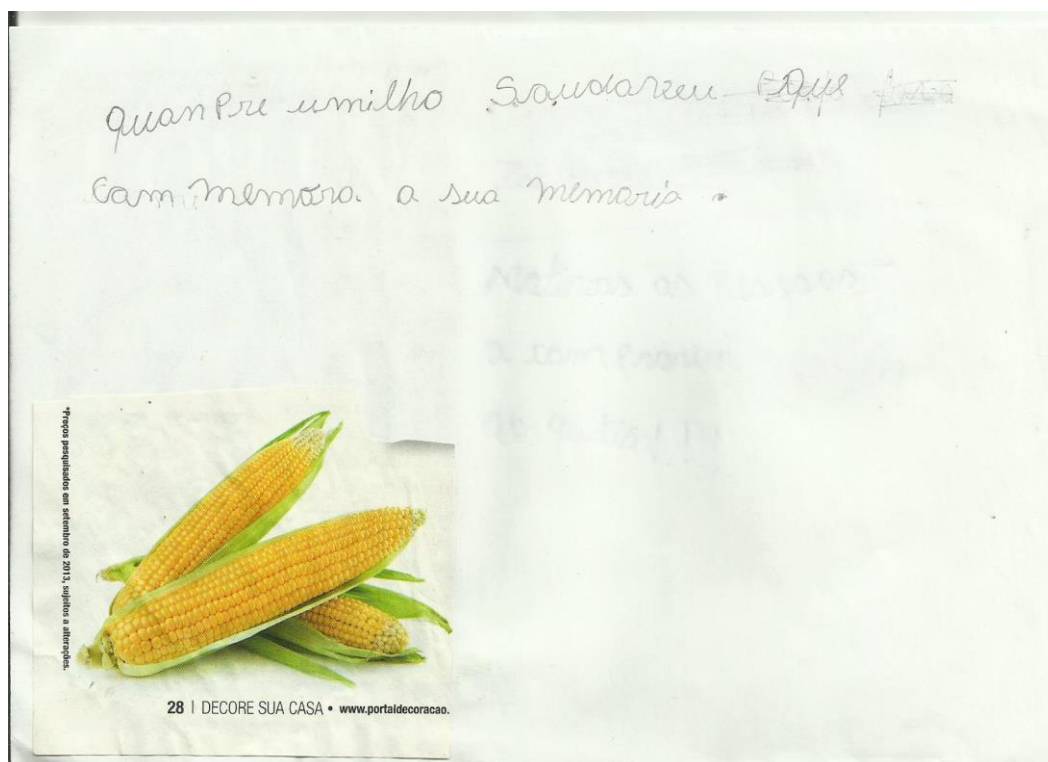 quanPre umilho Saudarzeu Que
Cam memora. a sua memaria.
*Preços pesquisados em setembro de 2013, sujeitos a alterações.
28 | DECORE SUA CASA • www.portaldecoracao.